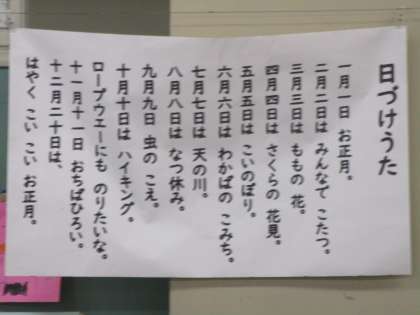 日づけうた
一月一日 お正月。
二月二日は みんなで こたつ。
三月三日は ももの 花。
四月四日は さくらの 花見。
五月五日は こいのぼり。
六月六日は わかばの こみち。
七月七日は 天の川。
八月八日は なつ休み。
九月九日 虫の こえ。
十月十日は ハイキング。
ロープウエーにも のりたいな。
十一月十一日 おちばひろい。
十二月二十日は、
はやく こい こい お正月。